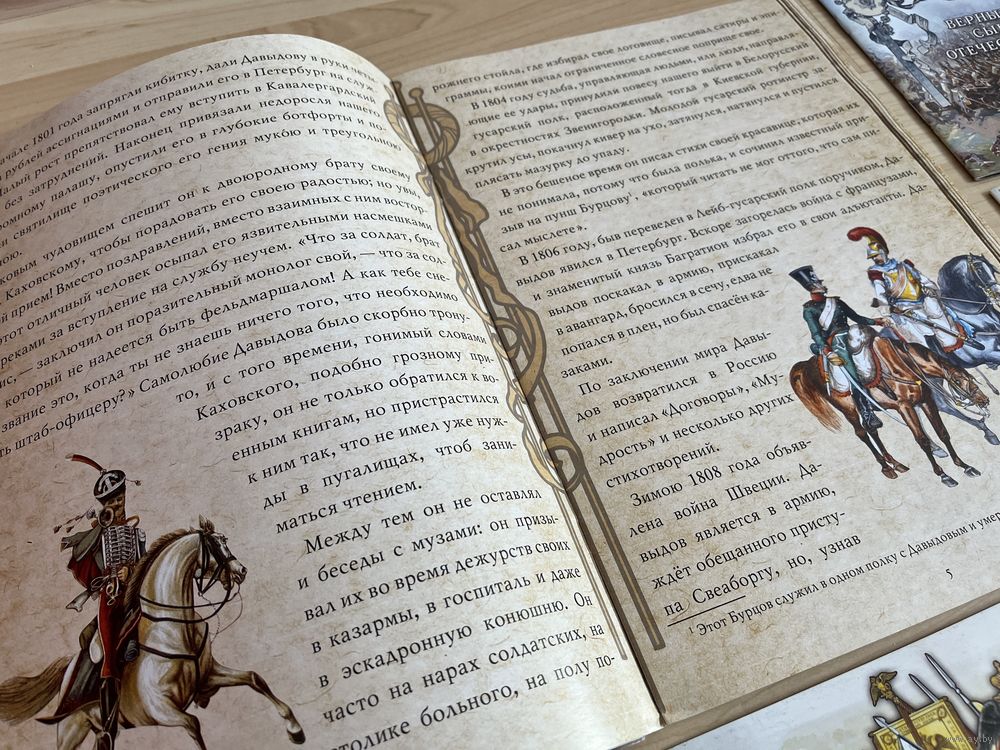 чале 1801 года запрягли кибитку, дали Давыдову в руки четы-
рублей ассигнациями и отправили его в Петербург на служ-
Малый рост препятствовал ему вступить в Кавалергардский
без затруднений. Наконец привязали недоросля нашего
ромному палашу, опустили его в глубокие ботфорты и по-
и святилище поэтического его гения мукою и треугольною
ою.
ковым чудовищем спешит он к двоюродному брату своему
Каховскому, чтобы порадовать его своею радостью; но увы,
й прием! Вместо поздравлений, вместо взаимных с ним востор-
этот отличный человек осыпал его язвительными насмешками
реками за вступление на службу неучем. «Что за солдат, брат
ис, — заключил он поразительный монолог свой, — что за сол-
который не надеется быть фельдмаршалом! А как тебе сне-
звание это, когда ты не знаешь ничего того, что необходимо
ть штаб-офицеру?» Самолюбие Давыдова было скорбно трону-
то, и с того времени, гонимый словами
Каховского, подобно грозному при-
зраку, он не только обратился к во-
енным книгам, но пристрастился
к ним так, что не имел уже нуж-
ды в пугалищах, чтоб зани-
маться чтением.
Между тем он не оставлял
и беседы с музами: он призы-
вал их во время дежурств своих
в казармы, в госпиталь и даже
в эскадронную конюшню. Он
часто на нарах солдатских, на
столике больного, на полу по-
рожнего стойла, где избирал свое логовище, писывал сатиры и эпи-
граммы, коими начал ограниченное словесное поприще свое.
В 1804 году судьба, управляющая людьми, или люди, направля-
ющие ее удары, принудили повесу нашего выйти в Белорусский
гусарский полк, расположенный тогда в Киевской губернии,
в окрестностях Звенигородки. Молодой гусарский ротмистр за-
крутил усы, покачнул кивер на ухо, затянулся, натянулся и пустился
плясать мазурку до упаду.
В это бешеное время он писал стихи своей красавице, которая их
не понимала, потому что была полька, и сочинил известный при-
зыв на пунш Бурцову¹, «который читать не мог оттого, что сам пи-
сал мыслете».
В 1806 году, быв переведен в Лейб-гусарский полк поручиком, Да-
выдов явился в Петербург. Вскоре загорелась война с французами,
и знаменитый князь Багратион избрал его в свои адъютанты. Да-
выдов поскакал в армию, прискакал
в авангард, бросился в сечу, едва не
попался в плен, но был спасён ка-
заками.
По заключении мира Давы-
дов возвратился в Россию
и написал «Договоры», «Му-
дрость» и несколько других
стихотворений.
Зимою 1808 года объяв-
лена война Швеции. Да-
выдов является в армию,
ждёт обещанного присту-
па Свеаборгу, но, узнав
¹ Этот Бурцов служил в одном полку с Давыдовым и умер
5
ВЕРНЫ
СЫ
ОТЕЧЕС
www.ay.by